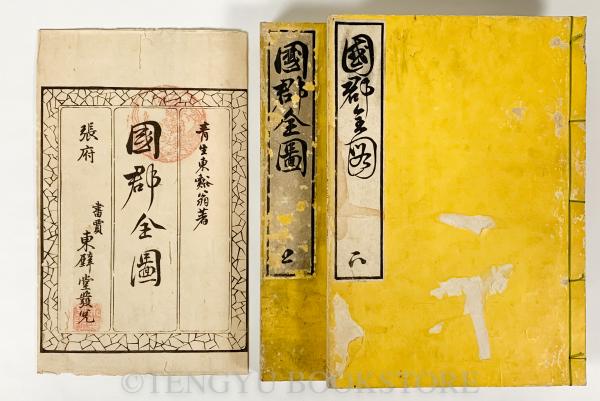 青生東谿翁著
國郡全圖
張府
書賈
東壁堂發兌
國郡全圖
上
國郡全図
下
©TENGYU BOOKSTORE